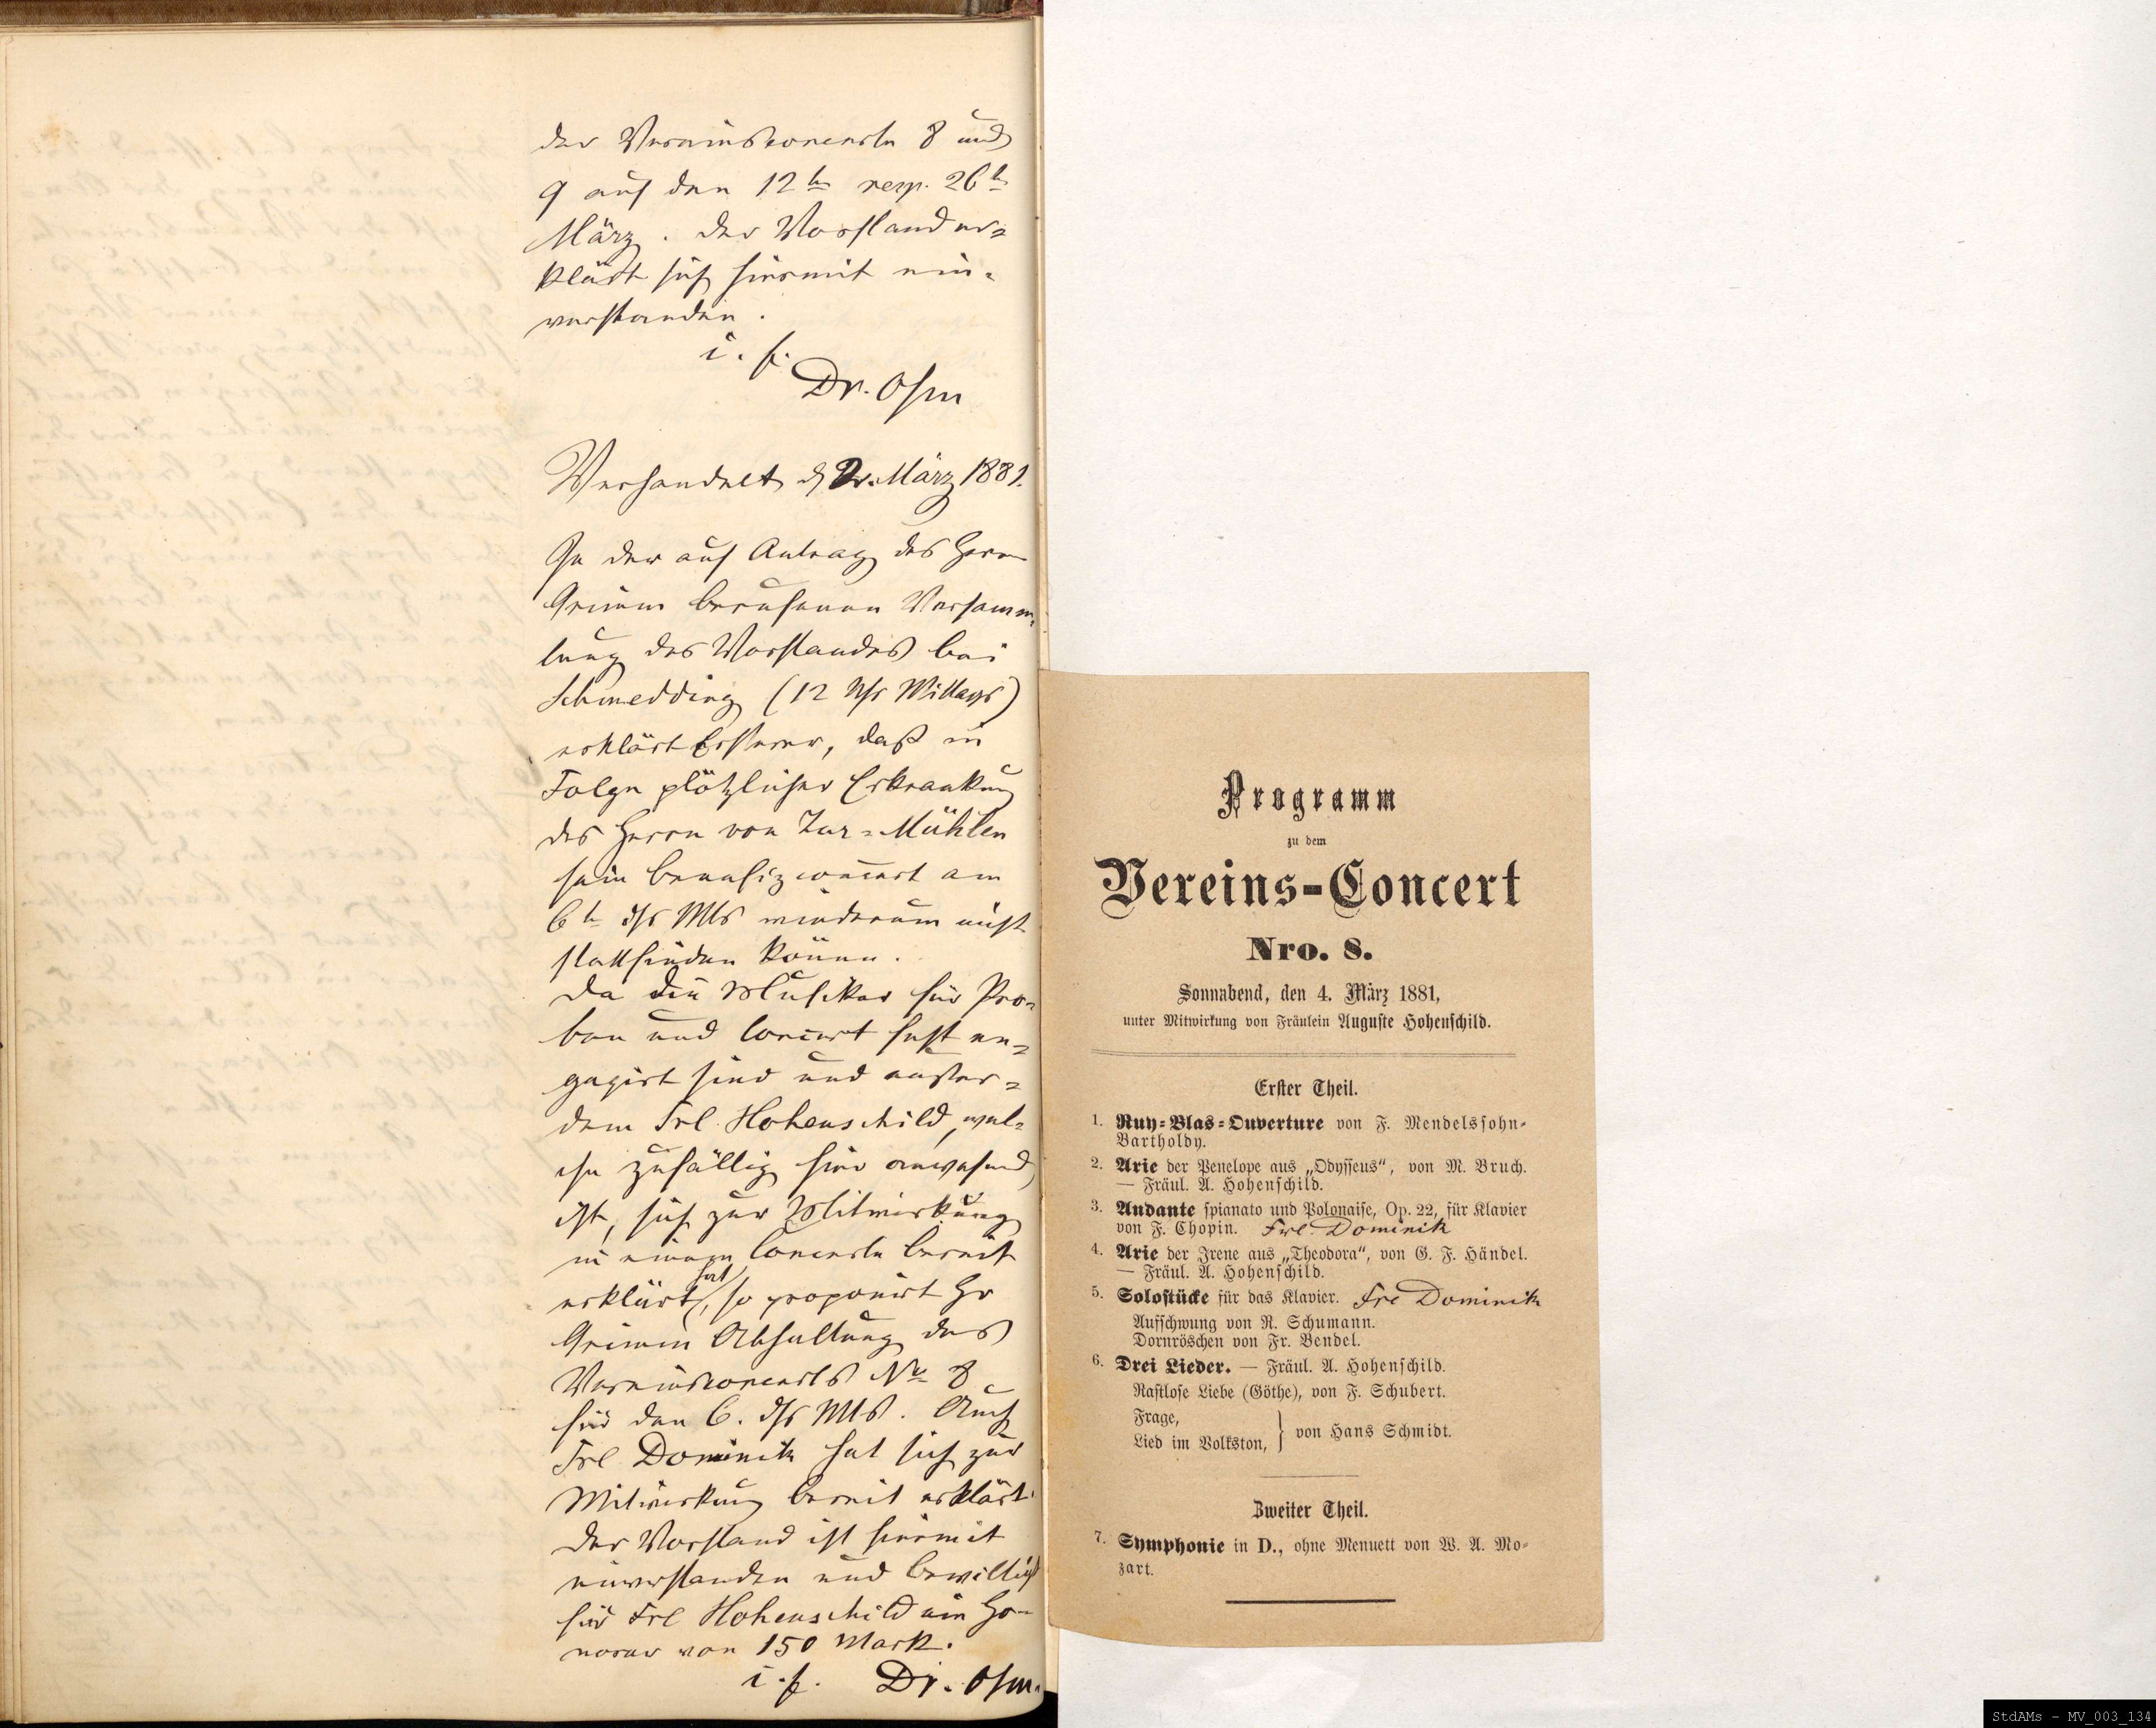 der Vereinsconcerte 8 und
9 auf den 12t resp. 26t
März. Der Vorstand er-
klärt sich hiermit ein-
verstanden.
i. f.
Dr. Ohm
Verhandelt d 2. März 1881.
In der auf Antrag des Herrn
Grimm berufenen Versamm-
lung des Vorstandes bei
Schmedding (12 Uhr Mittags)
erklärt Ersterer, daß in
Folge plötzlicher Erkrankung
des Herrn von Zur-Mühlen
sein Benefizconcert am
6t dss Mts wiederum nicht
stattfinden könne.
Da die Musiker für Pro-
ben und Concert fest en-
gagirt sind und außer-
dem Frl. Hohenschild, wel-
che zufällig hier anwesend
ist, sich zur Mitwirkung
in einem Concerte bereit
erklärt hat, so proponirt Hr
Grimm Abhaltung des
Vereinsconcerts No 8
für den 6. dss Mts. Auch
Frl Dominik hat sich zur
Mitwirkung bereit erklärt.
Der Vorstand ist hiermit
einverstanden und bewilligt
für Frl Hohenschild ein Ho-
norar von 150 Mark.
i. f. Dr. Ohm.
Programm
zu dem
Vereins-Concert
Nro. 8.
Sonnabend, den 4. März 1881,
unter Mitwirkung von Fräulein Auguste Hohenschild.
Erster Theil.
1. Ruy-Blas-Ouverture von F. Mendelssohn-
Bartholdy.
2. Arie der Penelope aus „Odysseus“, von M. Bruch.
— Fräul. A. Hohenschild.
3. Andante spianato und Polonaise, Op. 22, für Klavier
von F. Chopin. Frl. Dominik
4. Arie der Irene aus „Theodora“, von G. F. Händel.
— Fräul. A. Hohenschild.
5. Solostücke für das Klavier. Frl Dominik
Aufschwung von R. Schumann.
Dornröschen von Fr. Bendel.
6. Drei Lieder. — Fräul. A. Hohenschild.
Rastlose Liebe (Göthe), von F. Schubert.
Frage,
Lied im Volkston, } von Hans Schmidt.
Zweiter Theil.
7. Symphonie in D., ohne Menuett von W. A. Mo-
zart.
StdAMs - MV_003_134